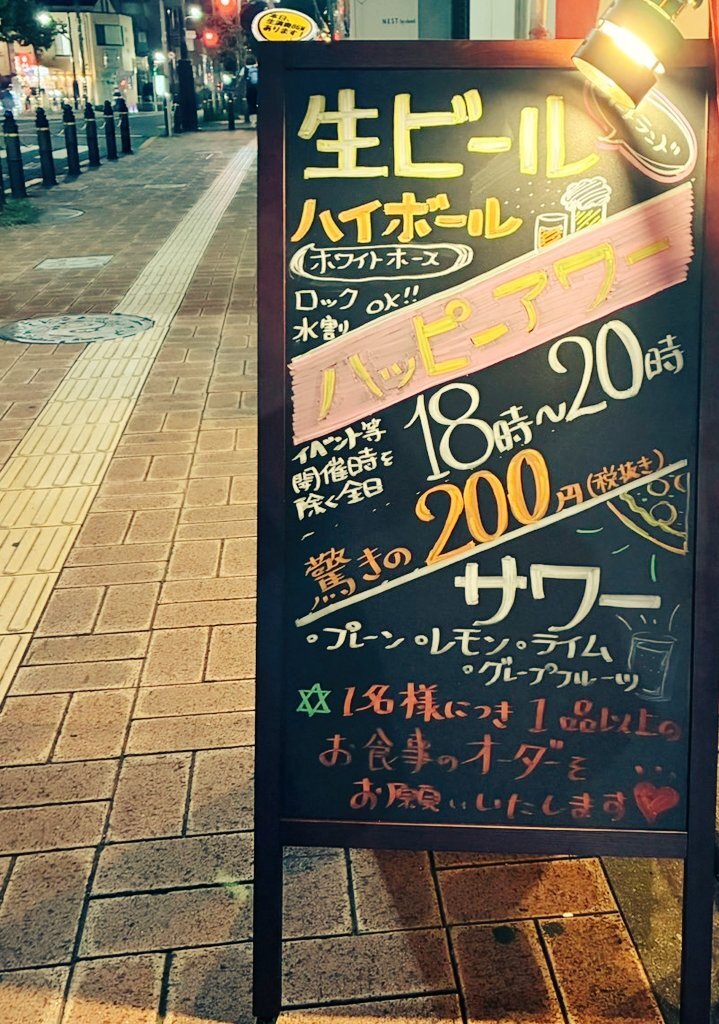 本日、
生演奏
あります!
N.E.S.T. by
生ビール
ハイボール
ホワイトホース
ロック
水割
OK!!
ハッピーアワー
18時~20時
イベント等
開催時を
除く全日
驚きの200円(税抜き)
サワー
•プレーン •レモン •ライム
•グレープフルーツ
1名様につき1品以上の
お食事のオーダーを
お願いいたします